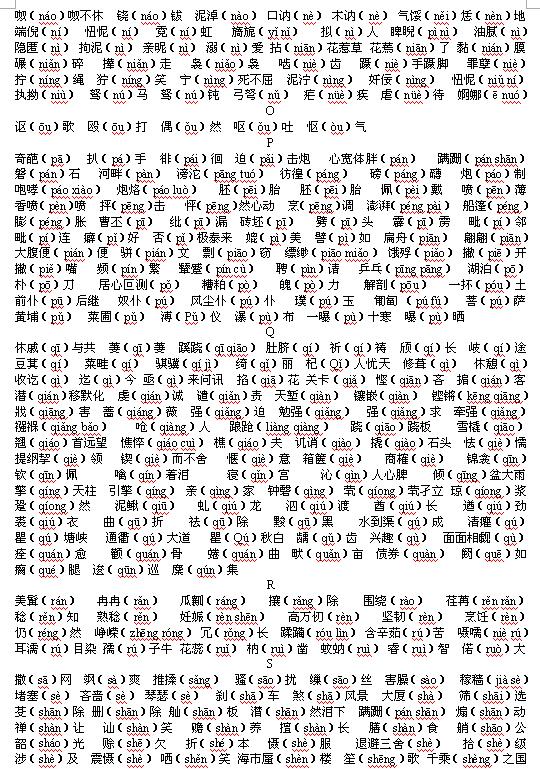 呶（náo）呶不休 铙（náo）钹 泥淖（nào） 口讷（nè） 木讷（nè） 气馁（něi）恁（nèn）地
端倪（ní） 忸怩（ní） 霓（ní）虹 旖旎（yǐ nǐ） 拟（nǐ）人 睥睨（pì nì） 油腻（nì）
隐匿（nì） 拘泥（nì） 亲昵（nì） 溺（nì）爱 拈（niān）花惹草 花蔫（niān）了 黏（nián）膜
碾（niǎn）碎 撵（niǎn）走 袅（niǎo）袅 啮（niè）齿 蹑（niè）手蹑脚 罪孽（niè）
拧（níng）绳 狞（níng）笑 宁（nìng）死不屈 泥泞（nìng） 奸佞（nìng） 忸怩（niǔ ní）
执拗（niù） 驽（nú）马 驽（nú）钝 弓弩（nǔ） 疟（nüè）疾 虐（nüè）待 婀娜（ē nuó）
O
讴（ōu）歌 殴（ōu）打 偶（ǒu）然 呕（ǒu）吐 怄（òu）气
P
奇葩（pā） 扒（pá）手 徘（pái）徊 迫（pǎi）击炮 心宽体胖（pán） 蹒跚（pán shān）
磐（pán）石 河畔（pàn） 滂沱（pāng tuó） 彷徨（páng） 磅（páng）礴 炮（páo）制
咆哮（páo xiào） 炮烙（páo luò） 胚（pēi）胎 胚（pēi）胎 佩（pèi）戴 喷（pēn）薄
香喷（pèn）喷 抨（pēng）击 怦（pēng）然心动 烹（pēng）调 澎湃（péng pài） 船篷（péng）
膨（péng）胀 曹丕（pī） 纰（pī）漏 砖坯（pī） 劈（pī）头 霹（pī）雳 毗（pí）邻
毗（pí）连 癖（pǐ）好 否（pǐ）极泰来 媲（pì）美 譬（pì）如 扁舟（piān） 翩翩（piān）
大腹便（pián）便 骈（pián）文 剽（piāo）窃 缥缈（piāo miǎo） 饿殍（piǎo） 撇（piē）开
撇（piě）嘴 频（pín）繁 颦蹙（pín cù） 聘（pìn）请 乒乓（pīng pāng） 湖泊（pō）
朴（pō）刀 居心叵测（pǒ） 糟粕（pò） 魄（pò）力 解剖（pōu） 一抔（póu）土
前仆（pū）后继 奴仆（pú） 风尘仆（pú）仆 璞（pú）玉 匍匐（pú fú） 菩（pú）萨
黄埔（pǔ） 菜圃（pǔ） 溥（Pǔ）仪 瀑（pù）布 一曝（pù）十寒 曝（pù）晒
Q
休戚（qī）与共 萋（qī）萋 蹊跷（qī qiāo） 肚脐（qí） 祈（qí）祷 颀（qí）长 岐（qí）途
豆萁（qí） 菜畦（qí） 骐骥（qí jì） 绮（qǐ）丽 杞（Qǐ）人忧天 修葺（qì） 休憩（qì）
收讫（qì） 迄（qì）今 亟（qì）来问讯 掐（qiā）花 关卡（qiǎ） 悭（qiān）吝 掮（qián）客
潜（qián）移默化 虔（qián）诚 谴（qiǎn）责 天堑（qiàn） 镶嵌（qiàn） 铿锵（kēng qiāng）
戕（qiāng）害 蔷（qiáng）薇 强（qiǎng）迫 勉强（qiǎng） 强（qiǎng）求 牵强（qiǎng）
襁褓（qiǎng bǎo） 呛（qiàng）人 踉跄（liàng qiàng） 跷（qiāo）跷板 雪橇（qiāo）
翘（qiáo）首远望 憔悴（qiáo cuì） 樵（qiáo）夫 讥诮（qiào） 撬（qiào）石头 怯（qiè）懦
提纲挈（qiè）领 锲（qiè）而不舍 惬（qiè）意 箱箧（qiè） 商榷（què） 锦衾（qīn）
钦（qīn）佩 噙（qín）着泪 寝（qǐn）宫 沁（qìn）人心脾 倾（qīng）盆大雨
擎（qíng）天柱 引擎（qíng） 亲（qìng）家 钟磬（qìng） 茕（qióng）茕孑立 琼（qióng）浆
跫（qióng）然 泥鳅（qiū） 虬（qiú）龙 泅（qiú）渡 酋（qiú）长 遒（qiú）劲
裘（qiú）衣 曲（qū）折 祛（qū）除 黢（qū）黑 水到渠（qú）成 清癯（qú）
瞿（qú）塘峡 通衢（qú）大道 瞿（Qú）秋白 龋（qǔ）齿 兴趣（qù） 面面相觑（qù）
痊（quán）愈 颧（quán）骨 蜷（quán）曲 畎（quǎn）亩 债券（quàn） 阙（quē）如
瘸（qué）腿 逡（qūn）巡 麇（qún）集
R
美髯（rán） 冉冉（rǎn） 瓜瓤（ráng） 攘（rǎng）除 围绕（rào） 荏苒（rěn rǎn）
稔（rěn）知 熟稔（rěn） 妊娠（rèn shēn） 高万仞（rèn） 坚韧（rèn） 烹饪（rèn）
仍（réng）然 峥嵘（zhēng róng） 冗（rǒng）长 蹂躏（róu lìn） 含辛茹（rú）苦 嗫嚅（niè rú）
耳濡（rú）目染 孺（rú）子牛 花蕊（ruǐ） 枘（ruì）凿 蚊蚋（ruì） 睿（ruì）智 偌（ruò）大
S
撒（sā）网 飒（sà）爽 推搡（sǎng） 骚（sāo）扰 缫（sāo）丝 害臊（sào） 稼穑（jià sè）
堵塞（sè） 吝啬（sè） 琴瑟（sè） 刹（shā）车 煞（shā）风景 大厦（shà） 筛（shāi）选
芟（shān）除 删（shān）除 舢（shān）板 潸（shān）然泪下 蹒跚（pán shān） 煽（shān）动
禅（shàn）让 讪（shàn）笑 赡（shàn）养 擅（shàn）长 膳（shàn）食 艄（shāo）公
韶（sháo）光 赊（shē）欠 折（shé）本 慑（shè）服 退避三舍（shè） 拾（shè）级
涉（shè）及 震慑（shè） 哂（shěn）笑 海市蜃（shèn）楼 笙（shēng）歌 千乘（shèng）之国